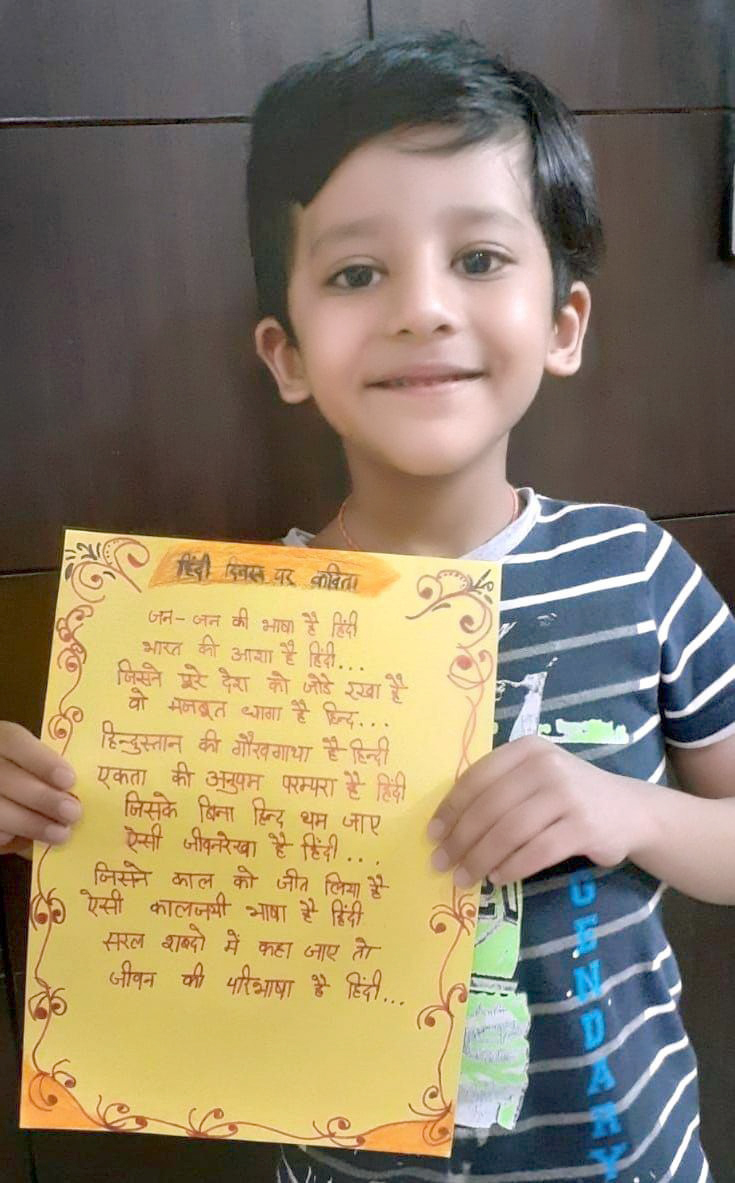 हिंदी दिवस पर कविता
जन-जन की भाषा है हिंदी
भारत की आशा है हिंदी...
जिसने पूरे देश को जोडे रखा है
वो मजबूत धागा है हिन्द...
हिन्दुस्तान की गौरवगाथा है हिन्दी
एकता की अनुपम परम्परा है हिंदी
जिसके बिना हिन्द थम जाए
ऐसी जीवनरेखा है हिंदी...
जिसने काल को जीत लिया है
ऐसी कालजयी भाषा है हिंदी
सरल शब्दो में कहा जाए तो
जीवन की परिभाषा है हिंदी...
GENDARY